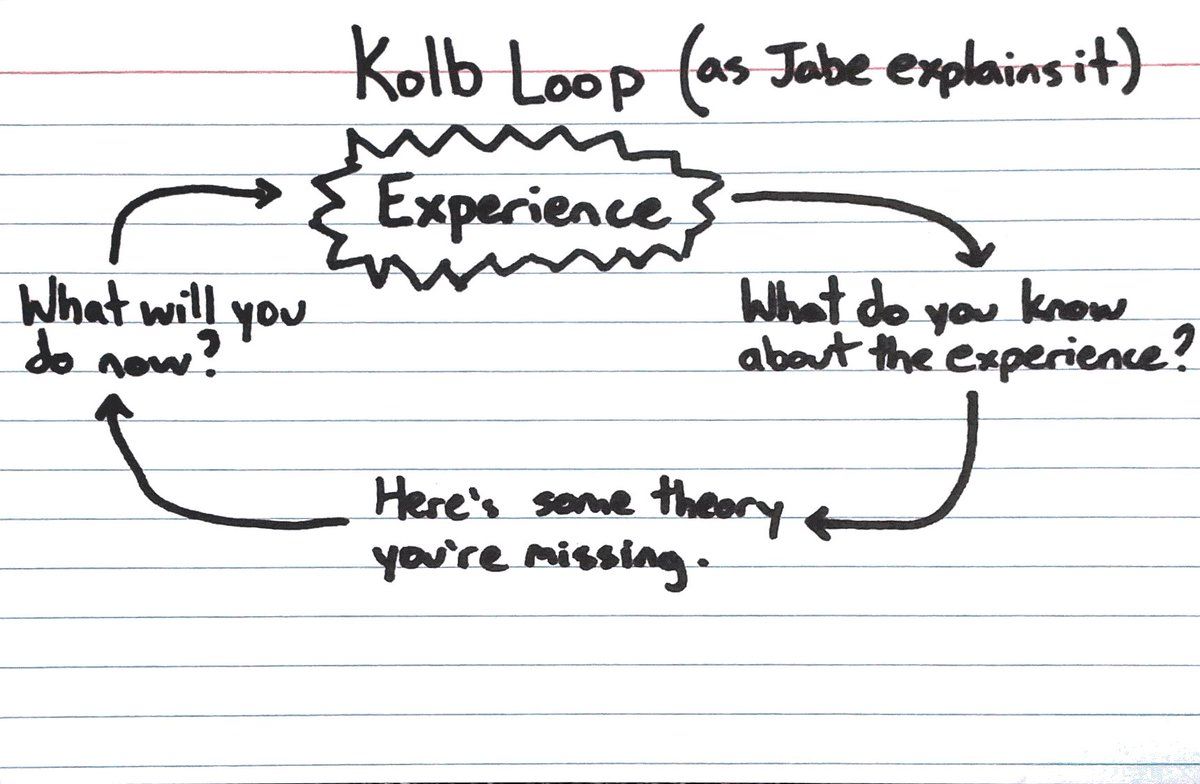 Kolb Loop (as Jabe explains it)
Experience
What do you know
about the experience?
Here's some theory
you're missing.
What will you
do now?